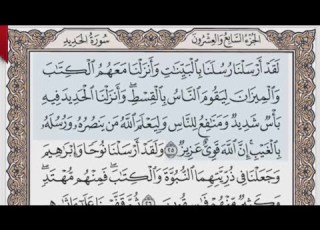 سُورَةُ الْحَدِيدِ الجُزْءُ السَّابِعُ وَالعِشْرُونَ
لَقَدْ أَرْسَلْنَا رُسُلَنَا بِالْبَيِّنَٰتِ وَأَنزَلْنَا مَعَهُمُ الْكِتَٰبَ
وَالْمِيزَانَ لِيَقُومَ النَّاسُ بِالْقِسْطِ ۖ وَأَنزَلْنَا الْحَدِيدَ فِيهِ
بَأْسٌ شَدِيدٌ وَمَنَٰفِعُ لِلنَّاسِ وَلِيَعْلَمَ اللَّهُ مَن يَنصُرُهُۥ وَرُسُلَهُۥ
بِالْغَيْبِ ۚ إِنَّ اللَّهَ قَوِيٌّ عَزِيزٌ ٢٥ وَلَقَدْ أَرْسَلْنَا نُوحًا وَإِبْرَٰهِيمَ
وَجَعَلْنَا فِي ذُرِّيَّتِهِمَا النُّبُوَّةَ وَالْكِتَٰبَ ۖ فَمِنْهُم مُّهْتَدٍ ۖ